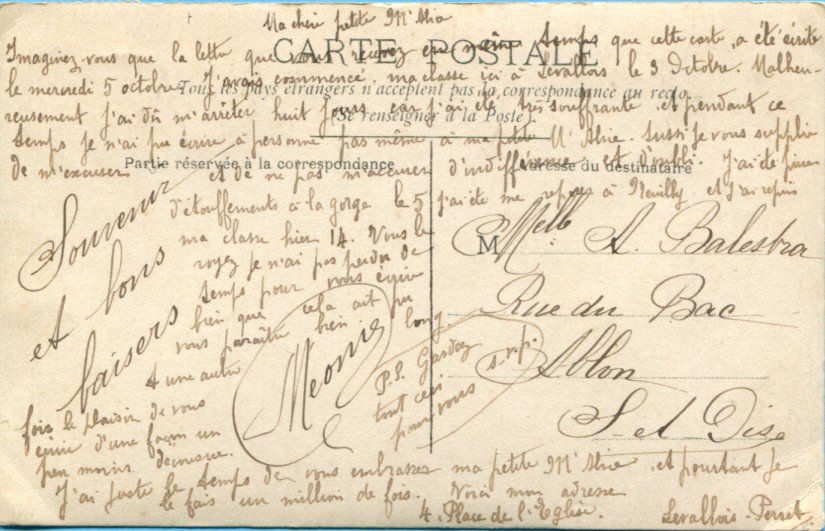 Ma chère petite M'Alia
CARTE POSTALE
Imaginez-vous que la lettre que vous recevez en même temps que cette carte, a été écrite
le mercredi 5 octobre. J'avais commencé, ma classe ici à Levallois le 3 Octobre. Malheu-
Tous les pays étrangers n'acceptent pas la correspondance au recto.
reusement j'ai dû m'arrêter huit jours car j'ai été très souffrante et pendant ce
(Se renseigner à la Poste).
temps je n'ai pu écrire à personne pas même à ma petite M'Alie. Aussi je vous supplie
de m'excuser et de ne pas m'accuser d'indifférence et d'oubli. J'ai été
Partie réservée à la correspondance
Adresse du destinataire
d'étouffements à la gorge le 5 j'ai été me reposer à Neuilly et j'ai repris
ma classe hier 14. Vous le
voyez je n'ai pas perdu de
temps pour vous écrire
bien que cela ait pu
vous paraître bien long
A une autre
fois le plaisir de vous
écrire d'une façon un
peu moins décousue.
J'ai juste le temps de vous embrasser ma petite M'Alie et pourtant je
le fais un million de fois. Voici mon adresse
4, Place de l'Eglise. Levallois-Perret
Souvenir
et bons
baisers
Meonig
P.S. Gardez
tout ceci
pour vous
s.v.p.
M
Melle A. Balestra
Rue du Bac
Ablon
S. et Oise